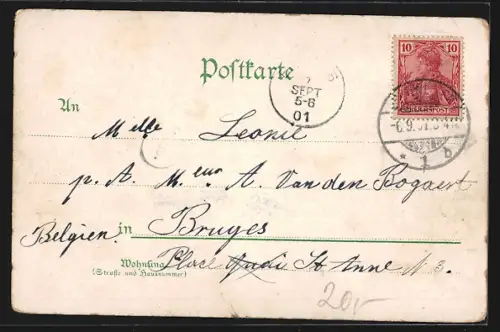 Postkarte
10 10
REICHSPOST
SEPT
5-6
01
-6.9.01.
* 1 b
An Melle Leonie
p. A. Meur A. Van den Bogaert
in Bruges
Belgien.
Wohnung Place St Anne N 3.
(Straße und Hausnummer)
20,-